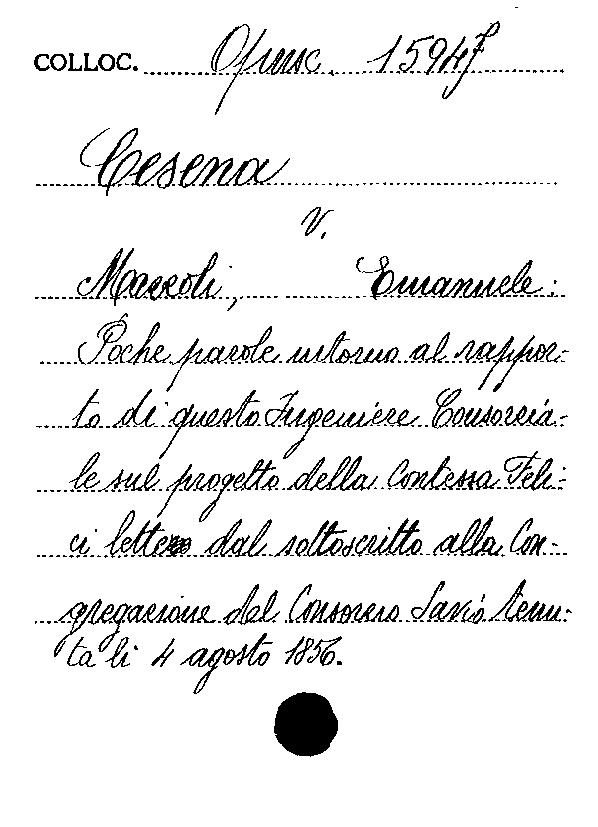 COLLOC. Opusc. 1594 F
Cesena
v.
Mazzoli, Emanuele:
Poche parole intorno al rappor-
to di questo Ingeniere Consorzia-
le sul progetto della Contessa Feli-
ci lette dal sottoscritto alla Con-
gregazione del Consorzio Savio tenu-
ta li 4 agosto 1856.